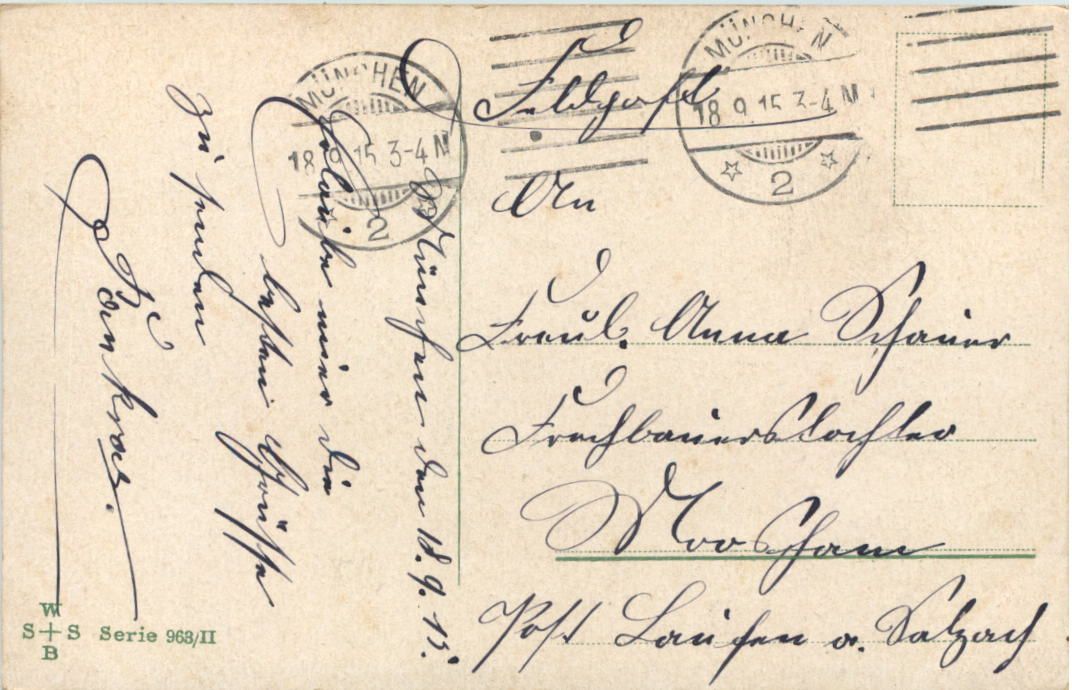 Feldpost
MÜNCHEN
18.9.15 3-4 N
2
MÜNCHEN
18.9.15 3-4 N
2
An
Freul. Anna Schauer
Moosham
Post Laufen a. Salzach
München den 18.9.15.
Erlaube mir die
besten Grüsse
zu senden
Pankraz.
W
S + S Serie 963/II
B